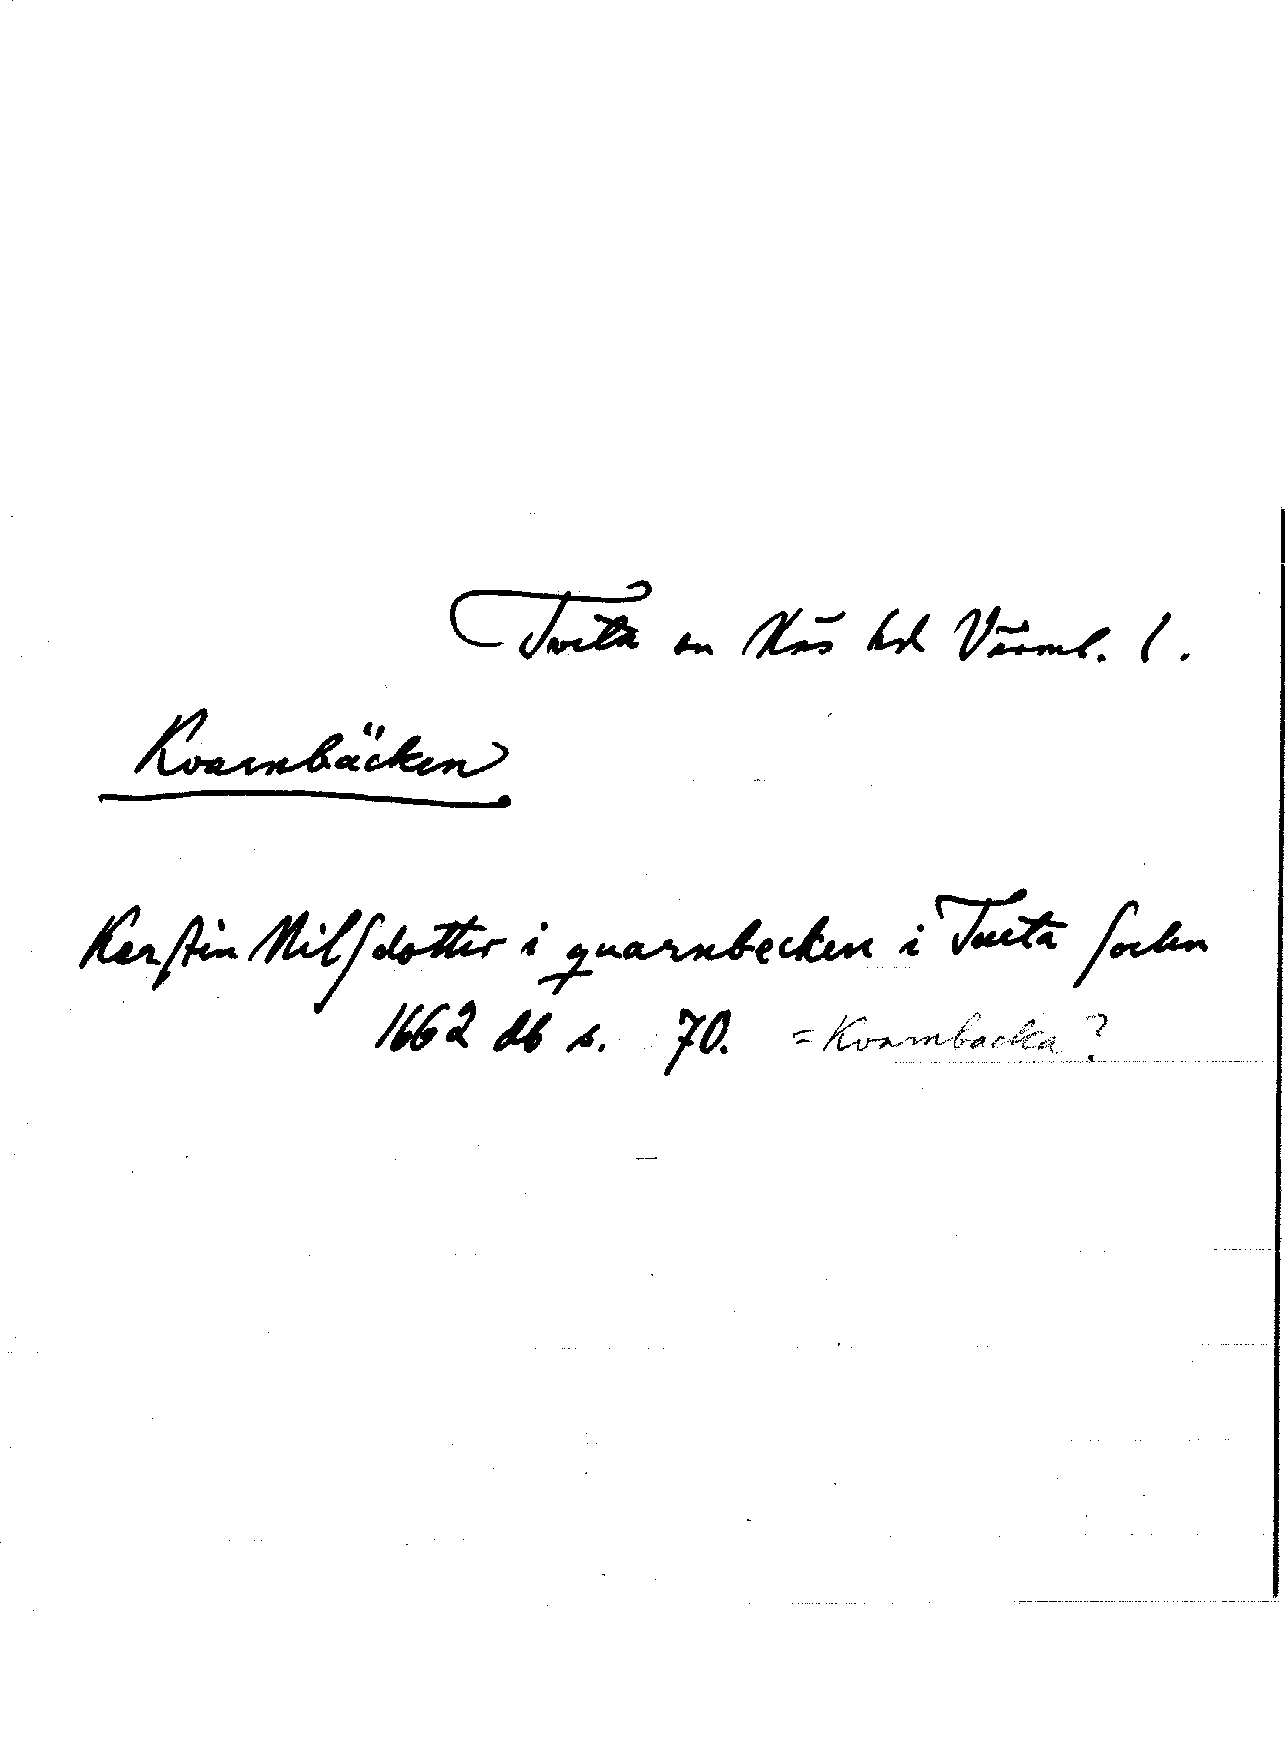 Tveta sn Näs hd Värml. l.
Kvarnbäcken
Kerstin Nilsdotter i quarnbecken i Tueta Sochn
1662 db s. 70. = Kvarnbacka?